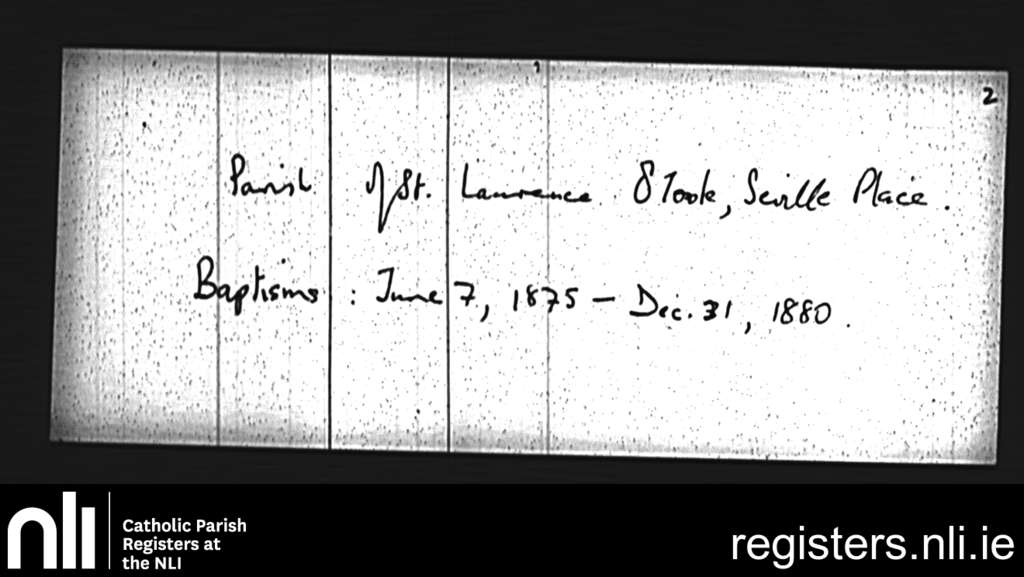 2
Parish of St. Lawrence O'Toole, Seville Place.
Baptisms : June 7, 1875 – Dec. 31, 1880.
nli
Catholic Parish
Registers at
the NLI
registers.nli.ie